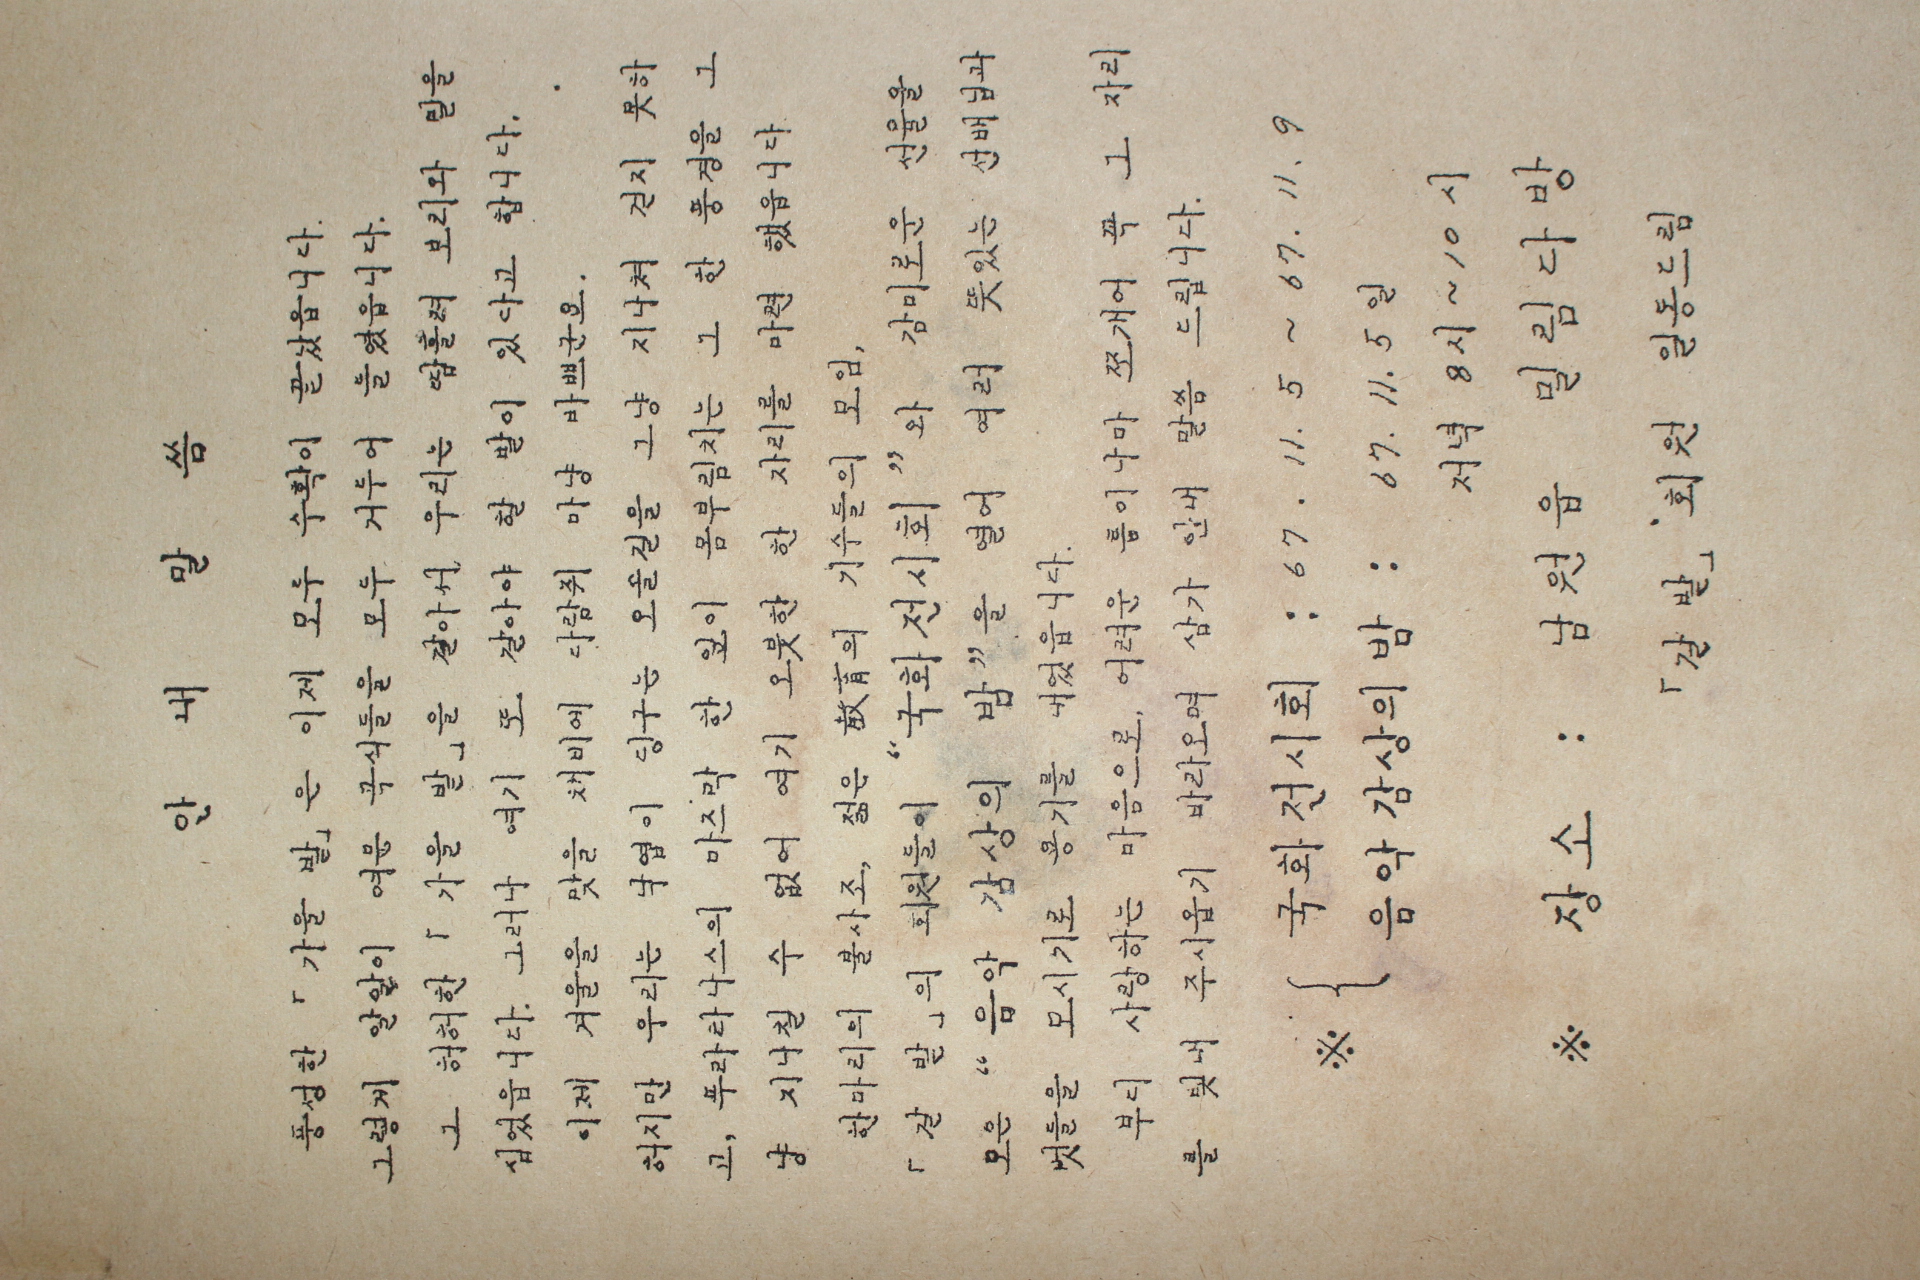 안 내 말 씀
풍성한 「가을 밭」은 이제 모두 수확이 끝났읍니다.
그렇게 알알이 여문 곡식들을 모두 거두어 들였읍니다.
그 허허한 「가을 밭」을 갈아서 우리는 땀흘려 보리와 밀을
심었읍니다. 그러나 여기 또 갈아야 할 밭이 있다고 합니다.
이제 겨울을 맞을 채비에 다람쥐 마냥 바쁘군요.
허지만 우리는 낙엽이 딩구는 오솔길을 그냥 지나쳐 걷지 못하
고, 푸라타나스의 마즈막 한 잎이 몸부림치는 그 한 풍경을 그
냥 지나칠 수 없어 여기 오붓한 한 자리를 마련 했읍니다
한마리의 불사조, 젊은 敎育의 기수들의 모임,
「갈 밭」의 회원들이 “국화전시회”와 감미로운 선율을
모은 “음악 감상의 밤”을 열어 여러 뜻있는 선배님과
벗들을 모시기로 용기를 내었읍니다.
부디 사랑하는 마음으로, 어려운 틈이나마 쪼개어 꼭 그 자리
를 빛내 주시옵기 바라오며 삼가 안내 말씀 드립니다.
※ { 국화전시회 : 67. 11. 5 ~ 67. 11. 9
음악감상의밤 : 67. 11. 5일
저녁 8시~10시
※ 장소 : 남원읍 밀림다방
「갈 밭」 회원 일동드림